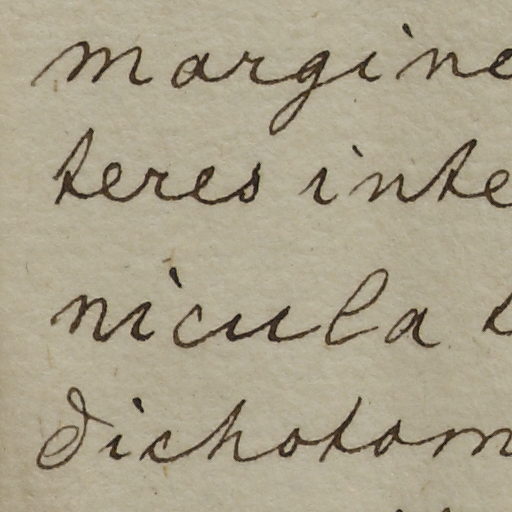 margine
teres inte
nicula
dichotom